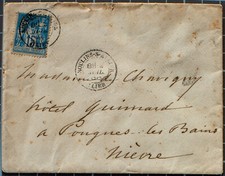 Madame Chavigny
hôtel Guimard
à Pougues les Bains
Nièvre